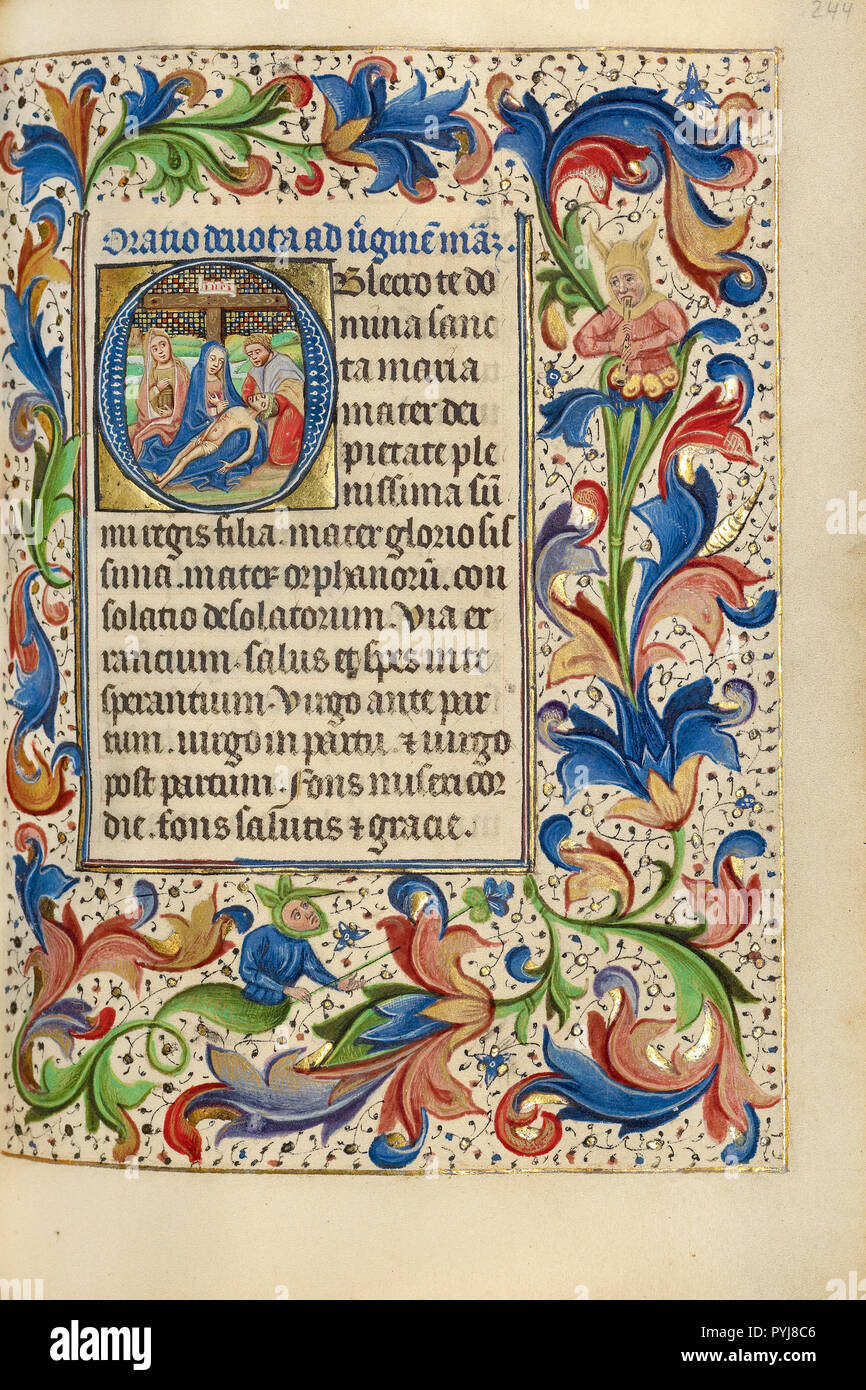 244
Oratio deuota ad v̄ginē maȝ.
Obsecro te do
mina sanc
ta maria
mater dei
pietate ple
nissima sū
mi regis filia. mater gloriosis
sima. mater orphanorū. con
solatio desolatorum. Via er
rancium. salus et spes in te
sperantium. Virgo ante par
tum. uirgo in partu. ⁊ uirgo
post partum. Fons misericor
die. fons salutis ⁊ gracie.
INRI
a
alamy stock photo
PYJ8C6
www.alamy.com